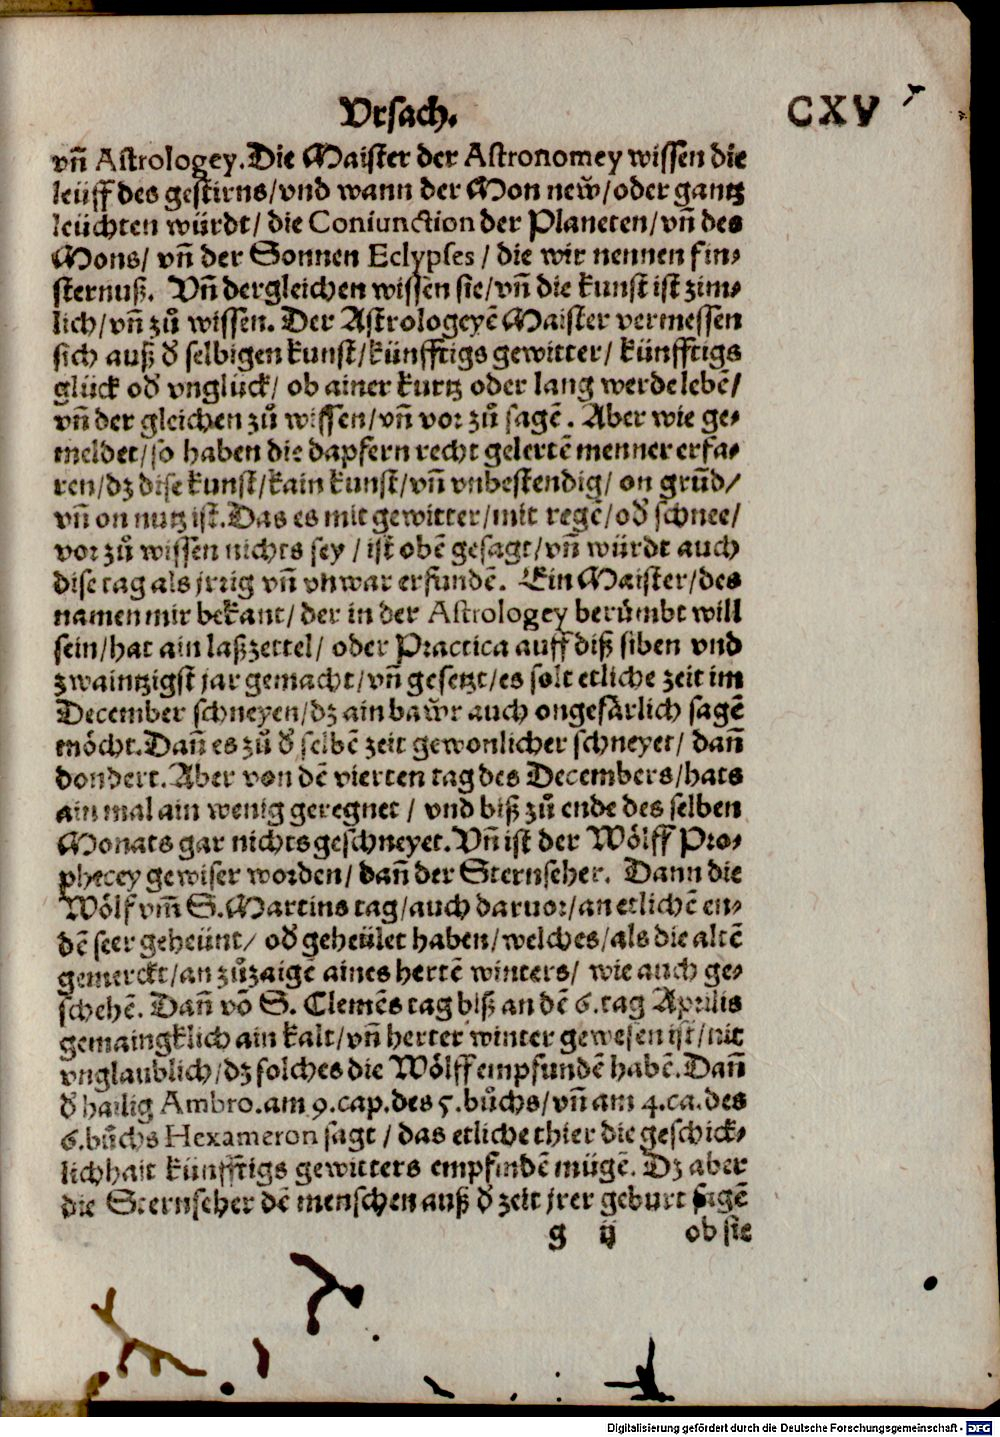 Vrsach. CXV
vñ Astrologey. Die Maister der Astronomey wissen die
leüff des gestirns/vnd wann der Mon new̃/oder gantz
leüchten würdt/ die Coniunction der Planeten/vñ des
Mons/ vñ der Sonnen Eclypses / die wir nennen fin⸗
sternuß. Vñ dergleichen wissen sie/vñ die kunst ist zim⸗
lich/vñ zů wissen. Der Astrologeyẽ Maister vermessen
sich auß d̕ selbigen kunst/künfftigs gewitter/ künfftigs
glück od̕ vnglück/ ob ainer kurtz oder lang werde lebẽ/
vñ der gleichen zů wissen/vñ vor zů sagẽ. Aber wie ge⸗
meldet/so haben die dapfern recht gelertẽ menner erfa⸗
ren/dz dise kunst/kain kunst/vñ vnbestendig/ on grũd/
vñ on nutz ist. Das es mit gewitter/mit regẽ/od̕ schnee/
vor zů wissen nichts sey / ist obẽ gesagt/vñ würdt auch
dise tag als jrrig vñ vnwar erfundẽ. Ein Maister/des
namen mir bekant/ der in der Astrologey berůmbt will
sein/hat ain laßzettel/ oder Practica auff diß siben vnd
zwaintzigst jar gemacht/vñ gesetzt/es solt etliche zeit im
December schneyen/dz ain baw̃r auch ongefärlich sagẽ
möcht. Dañ es zů d̕ selbẽ zeit gewonlicher schneyet/ dañ
dondert. Aber von dẽ vierten tag des Decembers/hats
ain mal ain wenig geregnet / vnd biß zů ende des selben
Monats gar nichts geschneyet. Vñ ist der Wölff Pro⸗
phecey gewiser worden/ dañ der Sternseher. Dann die
Wölf vm̃ S. Martins tag/auch daruor/an etlichẽ en⸗
dẽ seer geheünt/ od̕ geheület haben/welches/als die altẽ
gemerckt/an zůzaigẽ aines hertẽ winters/ wie auch ge⸗
schehẽ. Dañ võ S. Clemẽs tag biß an dẽ 6. tag Aprilis
gemaingklich ain kalt/vñ herter winter gewesen ist/nit
vnglaublich/dz solches die Wölff empfundẽ habẽ. Dañ
d̕ hailig Ambro. am 9. cap. des 5. bůchs/vñ am 4. ca. des
6. bůchs Hexameron sagt / das etliche thier die geschick⸗
lichhait künfftigs gewitters empfindẽ mügẽ. Dz aber
die Sternseher dẽ menschen auß d̕ zeit jrer geburt sagẽ
g ij ob sie
Digitalisierung gefördert durch die Deutsche Forschungsgemeinschaft - DFG